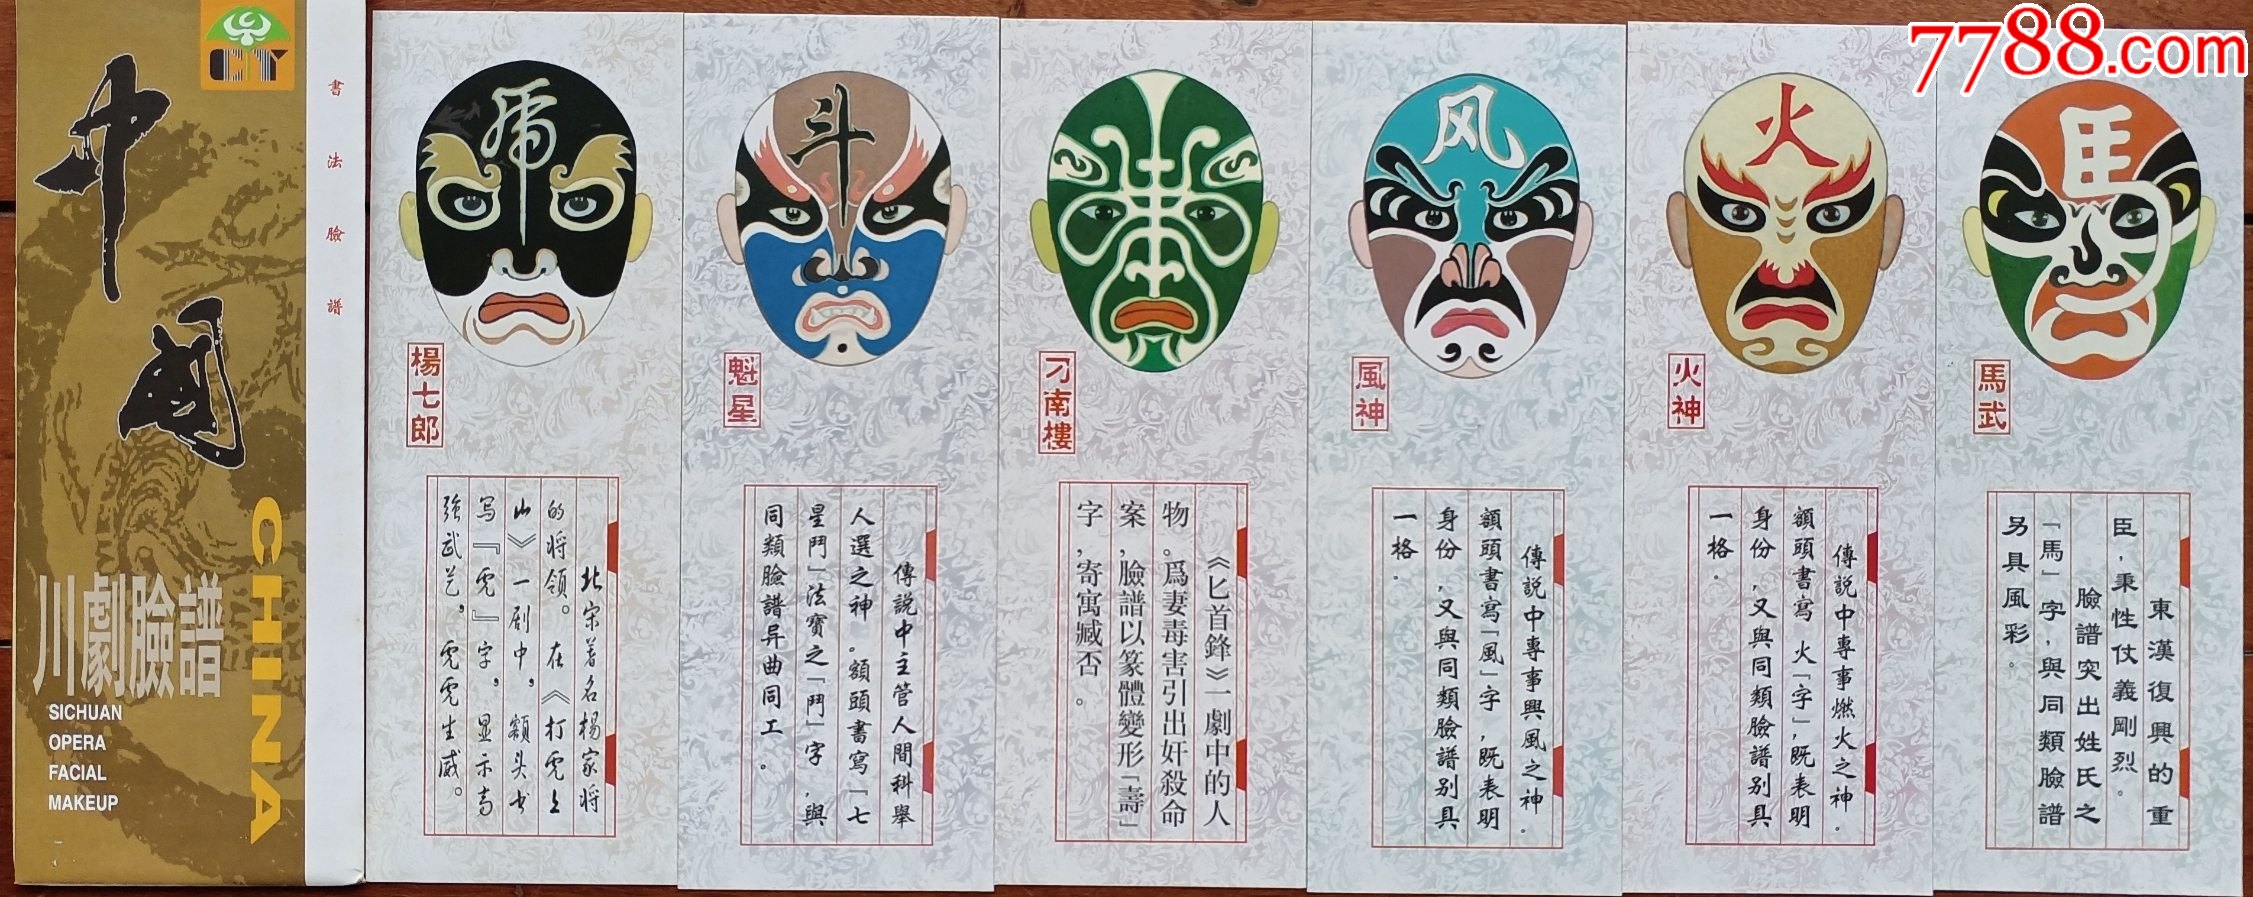 中国
CHINA
川劇臉譜
SICHUAN
OPERA
FACIAL
MAKEUP
CTY
書法臉譜
虎
楊七郎
北宋著名楊家将
的将領。在《打虎上
山》一剧中，額头书
写『虎』字，显示高
强武艺，虎虎生威。
斗
魁星
傳說中主管人間科舉
人選之神。額頭書寫「七
星鬥」法寶之「鬥」字，與
同類臉譜异曲同工。
刁南樓
《匕首鋒》一劇中的人
物。爲妻毒害引出奸殺命
案，臉譜以篆體變形「壽」
字，寄寓臧否。
风
風神
傳説中專事興風之神.
額頭書寫「風」字，既表明
身份，又與同類臉譜别具
一格.
火
火神
傳説中專事燃火之神.
額頭書寫 火「字」，既表明
身份，又與同類臉譜别具
一格.
馬
馬武
東漢復興的重
臣，秉性仗義剛烈。
臉譜突出姓氏之
「馬」字，與同類臉譜
另具風彩。
7788.com